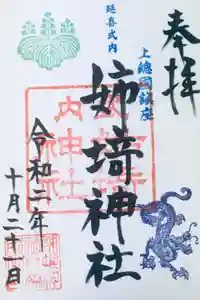 奉拝
上總國鎮座
延喜式内
姉埼神社
令和二年
十月二十一日